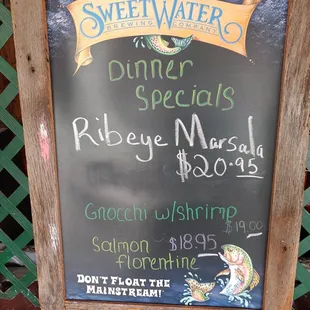 SWEETWATER
BREWING COMPANY
Dinner
Specials
Ribeye Marsala
$20.95
Gnocchi w/shrimp
$19.00
Salmon $18.95
florentine
DON'T FLOAT THE
MAINSTREAM!